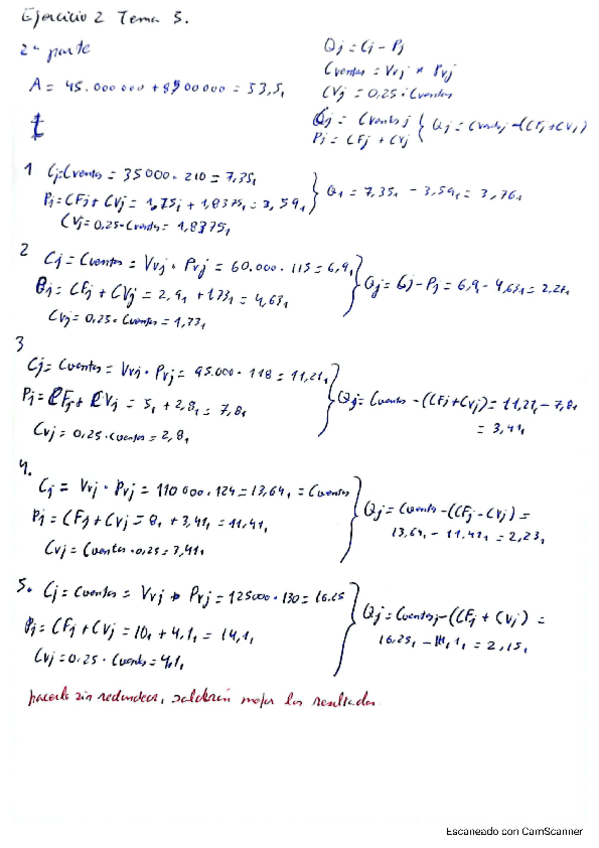 Ejercicio 2 Tema 5.
2ª parte
A = 45.000000 + 8500000 = 53,5₁
Qj = Cj - Pj
Cventas = Vvj * Pvj
CVj = 0,25 · Cventas
Qj = Cventasj
Pj = CFj + CVj
Qj = Cventasj - (CFj + CVj)
t
1 Cj = Cventas = 35000 · 210 = 7,35₁
Pj = CFj + CVj = 1,75₁ + 1,8375₁ = 3,59₁
CVj = 0,25 · Cventas = 1,8375₁
Q1 = 7,35₁ - 3,59₁ = 3,76₁
2 Cj = Cventas = Vvj · Pvj = 60.000 · 115 = 6,9₁
Pj = CFj + CVj = 2,9₁ + 1,73₁ = 4,63₁
CVj = 0,25 · Cventas = 1,73₁
Qj = Cj - Pj = 6,9₁ - 4,63₁ = 2,27₁
3
Cj = Cventas = Vvj · Pvj = 95.000 · 118 = 11,21₁
Pj = CFj + CVj = 5₁ + 2,8₁ = 7,8₁
CVj = 0,25 · Cventas = 2,8₁
Qj = Cventas - (CFj + CVj) = 11,21₁ - 7,8₁
= 3,41₁
4.
Cj = Vvj · Pvj = 110 000 · 124 = 13,64₁ = Cventas
Pj = CFj + CVj = 8₁ + 3,41₁ = 11,41₁
CVj = Cventas · 0,25 = 3,41₁
Qj = Cventas - (CFj - CVj) =
13,64₁ - 11,41₁ = 2,23₁
5. Cj = Cventas = Vvj * Pvj = 125000 · 130 = 16.25
Pj = CFj + CVj = 10₁ + 4,1₁ = 14,1₁
CVj = 0,25 · Cventas = 4,1₁
Qj = Cventasj - (CFj + CVj) =
16,25₁ - 14,1₁ = 2,15₁
hacerlo sin redondear, saldrán mejor los resultados.
Escaneado con CamScanner